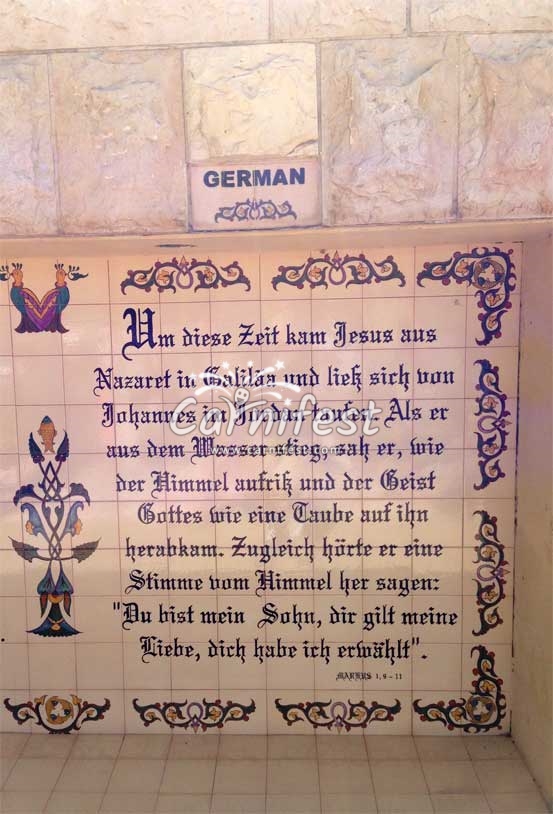 GERMAN
Um diese Zeit kam Jesus aus
Nazaret in Galiläa und ließ sich von
Johannes im Jordan taufen. Als er
aus dem Wasser stieg, sah er, wie
der Himmel aufriß und der Geist
Gottes wie eine Taube auf ihn
herabkam. Zugleich hörte er eine
Stimme vom Himmel her sagen:
"Du bist mein Sohn, dir gilt meine
Liebe, dich habe ich erwählt".
MARKUS 1, 9 - 11
Carnifest